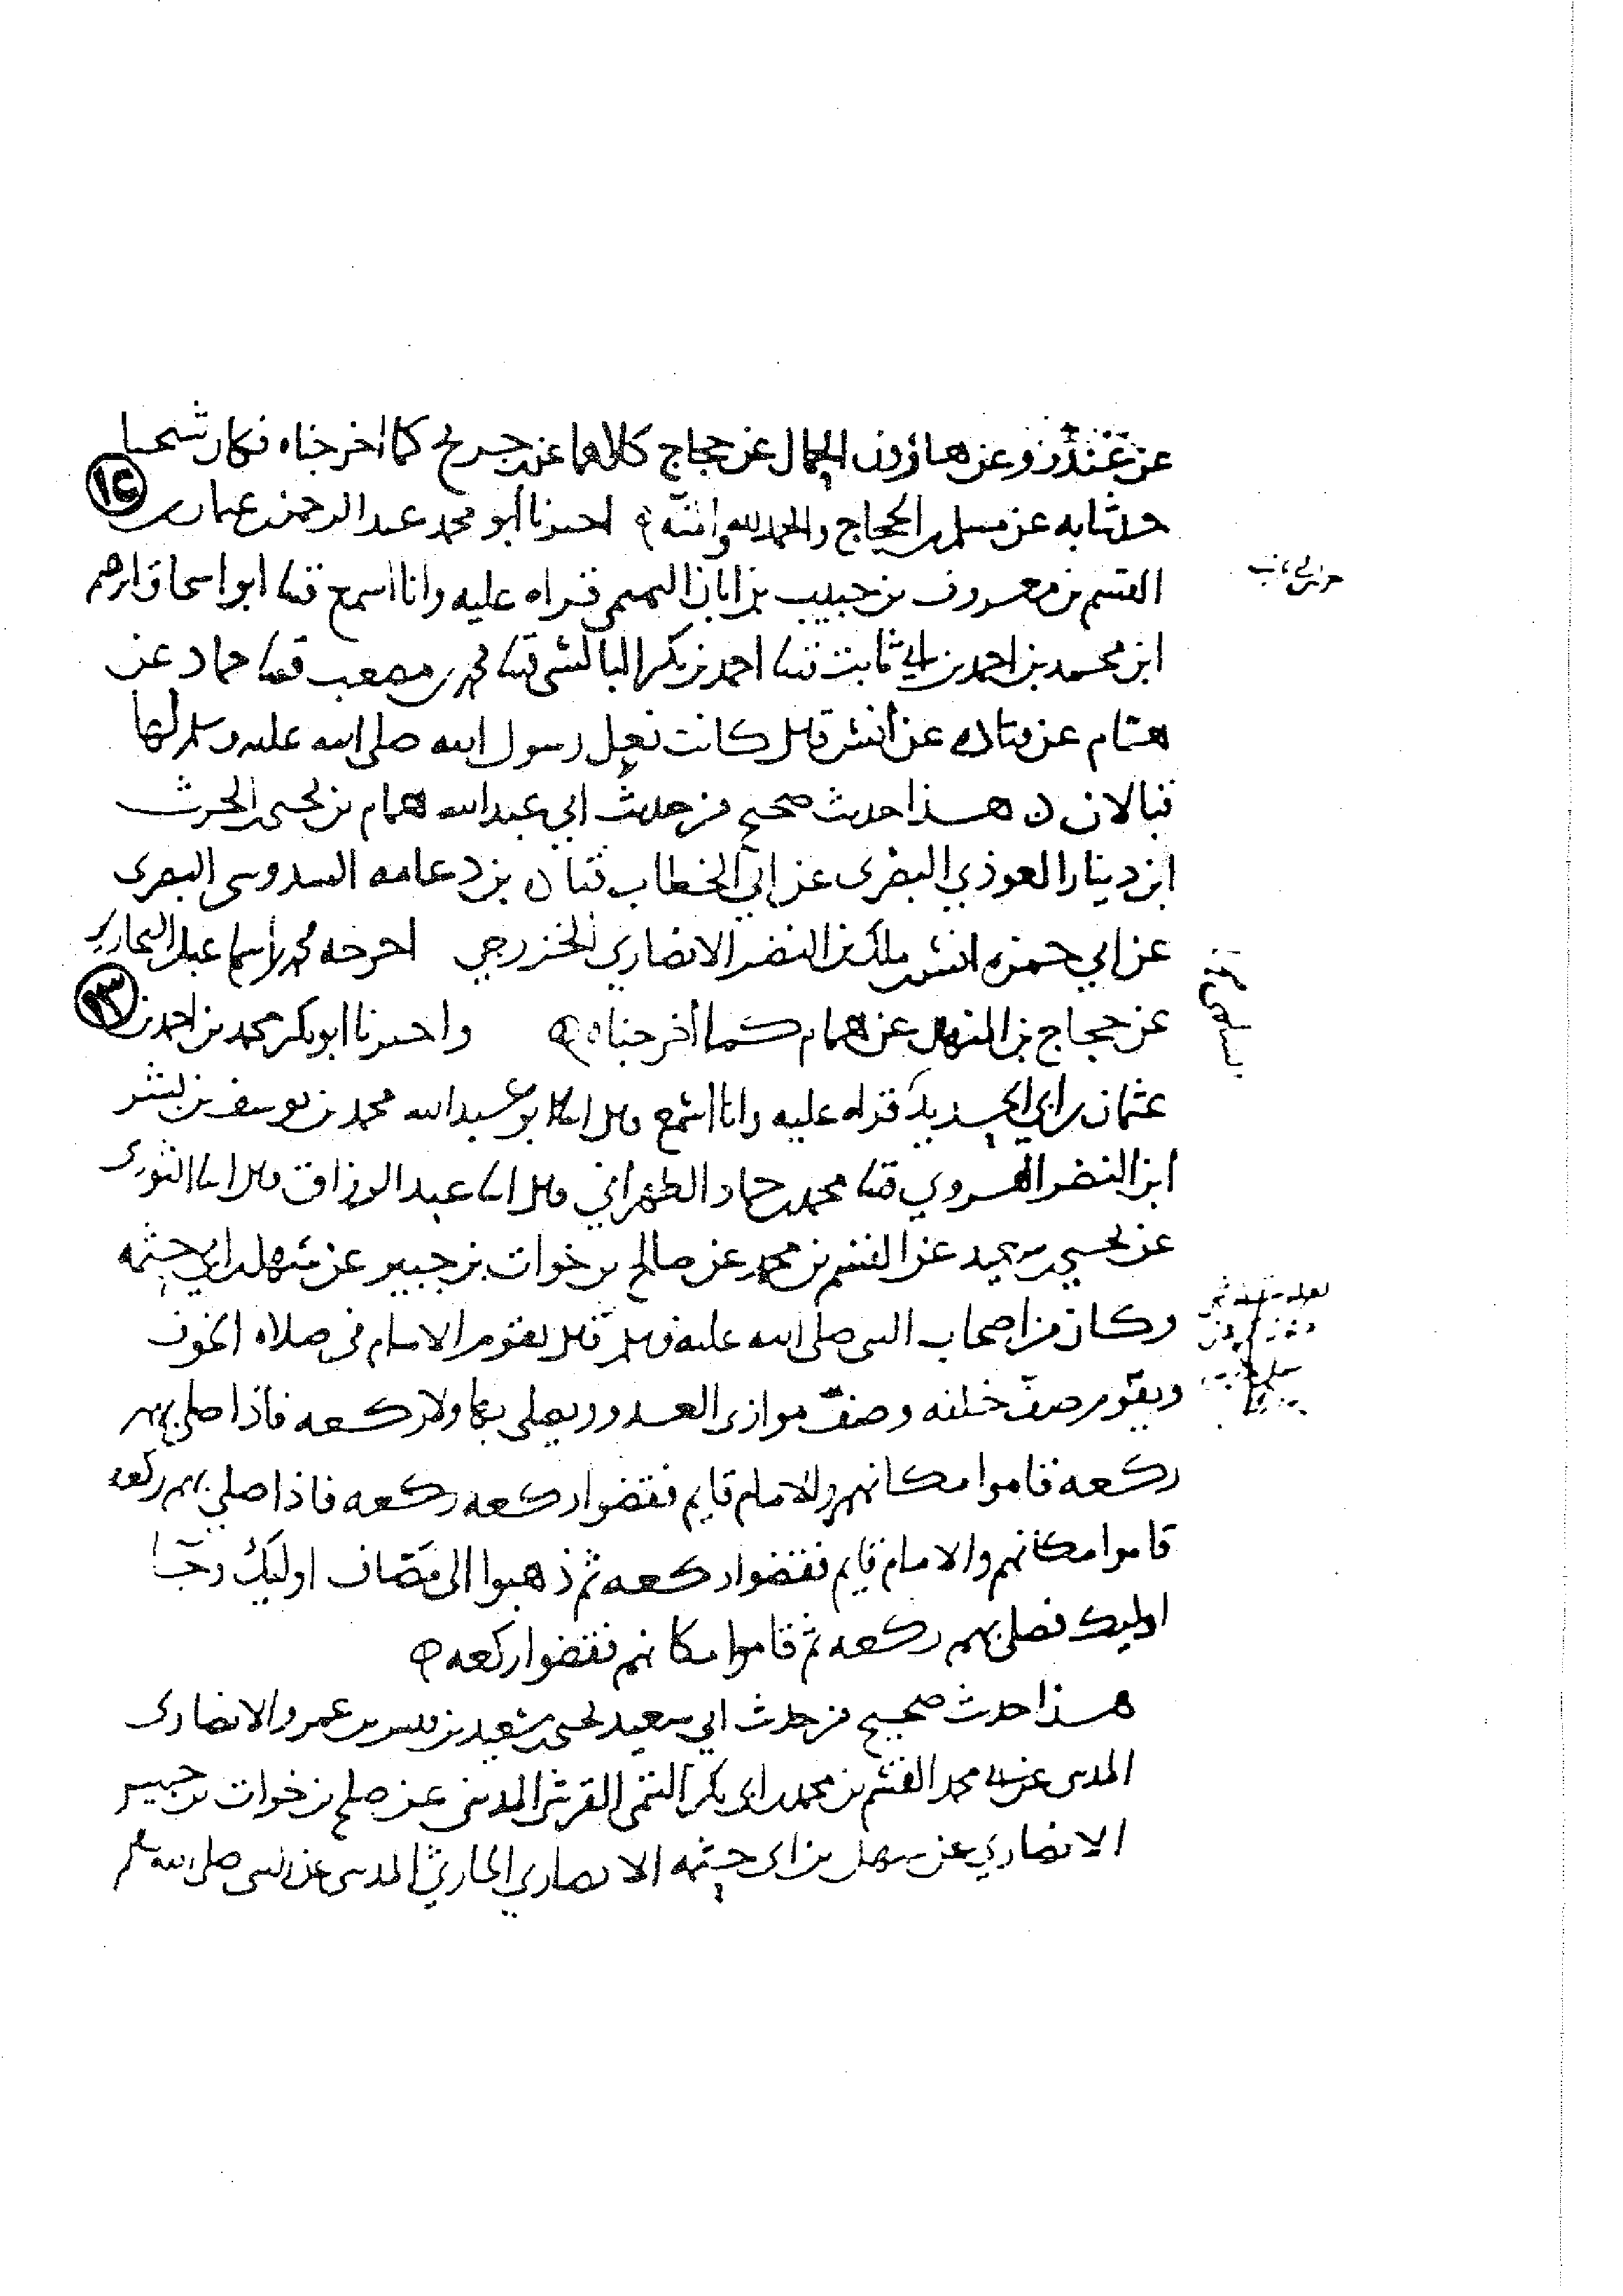 عن غندر وعن هارون الحمال عن حجاج كلاهما عن جريج كما اخرجناه فكان شيخنا
حدثنا به عن مسلم بن الحجاج والحمد لله والمنة اخبرنا ابو محمد عبد الرحمن بن عثمان بن
١٤
القسم بن معروف بن حبيب بن ابان التميمي قراه عليه وانا اسمع قثنا ابو اسحاق ابرهيم
ابن محمد بن احمد بن ابي ثابت ثنا احمد بن بكر البالسي قثنا محمد بن مصعب قثنا حماد عن
هشام عن قتاده عن انس قال كانت نعل رسول الله صلى الله عليه وسلم لها
قبالان ن هذا حديث صحيح من حديث ابي عبد الله همام بن يحيى
ابن دينار العوذي البصرى عن ابي الخطاب قتاده بن دعامه السدوسى البصرى
عن ابي حمزه انس بن ملك بن النضر الانصاري الخزرجي اخرجه محمد بن اسماعيل البخارى
عن حجاج بن المنهال عن همام كما اخرجناه واخبرنا ابو بكر محمد بن احمد بن
١٣
عثمان بن ابي الحديد قراه عليه وانا اسمع قال انا ابو عبد الله محمد بن يوسف بن بشر
ابن النضر الهروي قثنا محمد بن حماد الطهراني قال انا عبد الرزاق قال انا الثورى
عن يحيى بن سعيد عن القسم بن محمد عن صالح بن خوات بن جبير عن سهل بن ابي حثمه
وكان من اصحاب النبى صلى الله عليه وسلم قال يقوم الامام فى صلاه الخوف
ويقوم صف خلفه وصف موازى العدو ويصلى بهاولا ركعه فاذا صلى بهم
ركعه قاموا مكانهم والامام قايم فقضوا ركعه ركعه فاذا صلى بهم ركعه
قاموا مكانهم والامام قايم فقضوا ركعه ثم ذهبوا الى مصاف اوليك وجا
اوليك فصلى بهم ركعه ثم قاموا مكانهم فقضوا ركعه
هذا حديث صحيح من حديث ابي سعيد يحيى بن سعيد بن قيس بن عمرو الانصارى
المدنى عن محمد القسم بن محمد بن ابى بكر التيمى القرشى المدنى عن صلح بن خوات بن جبير
الانصاري عن سهل بن ابى حثمه الانصاري الحارثي المدنى عن النبى صلى الله عليه وسلم